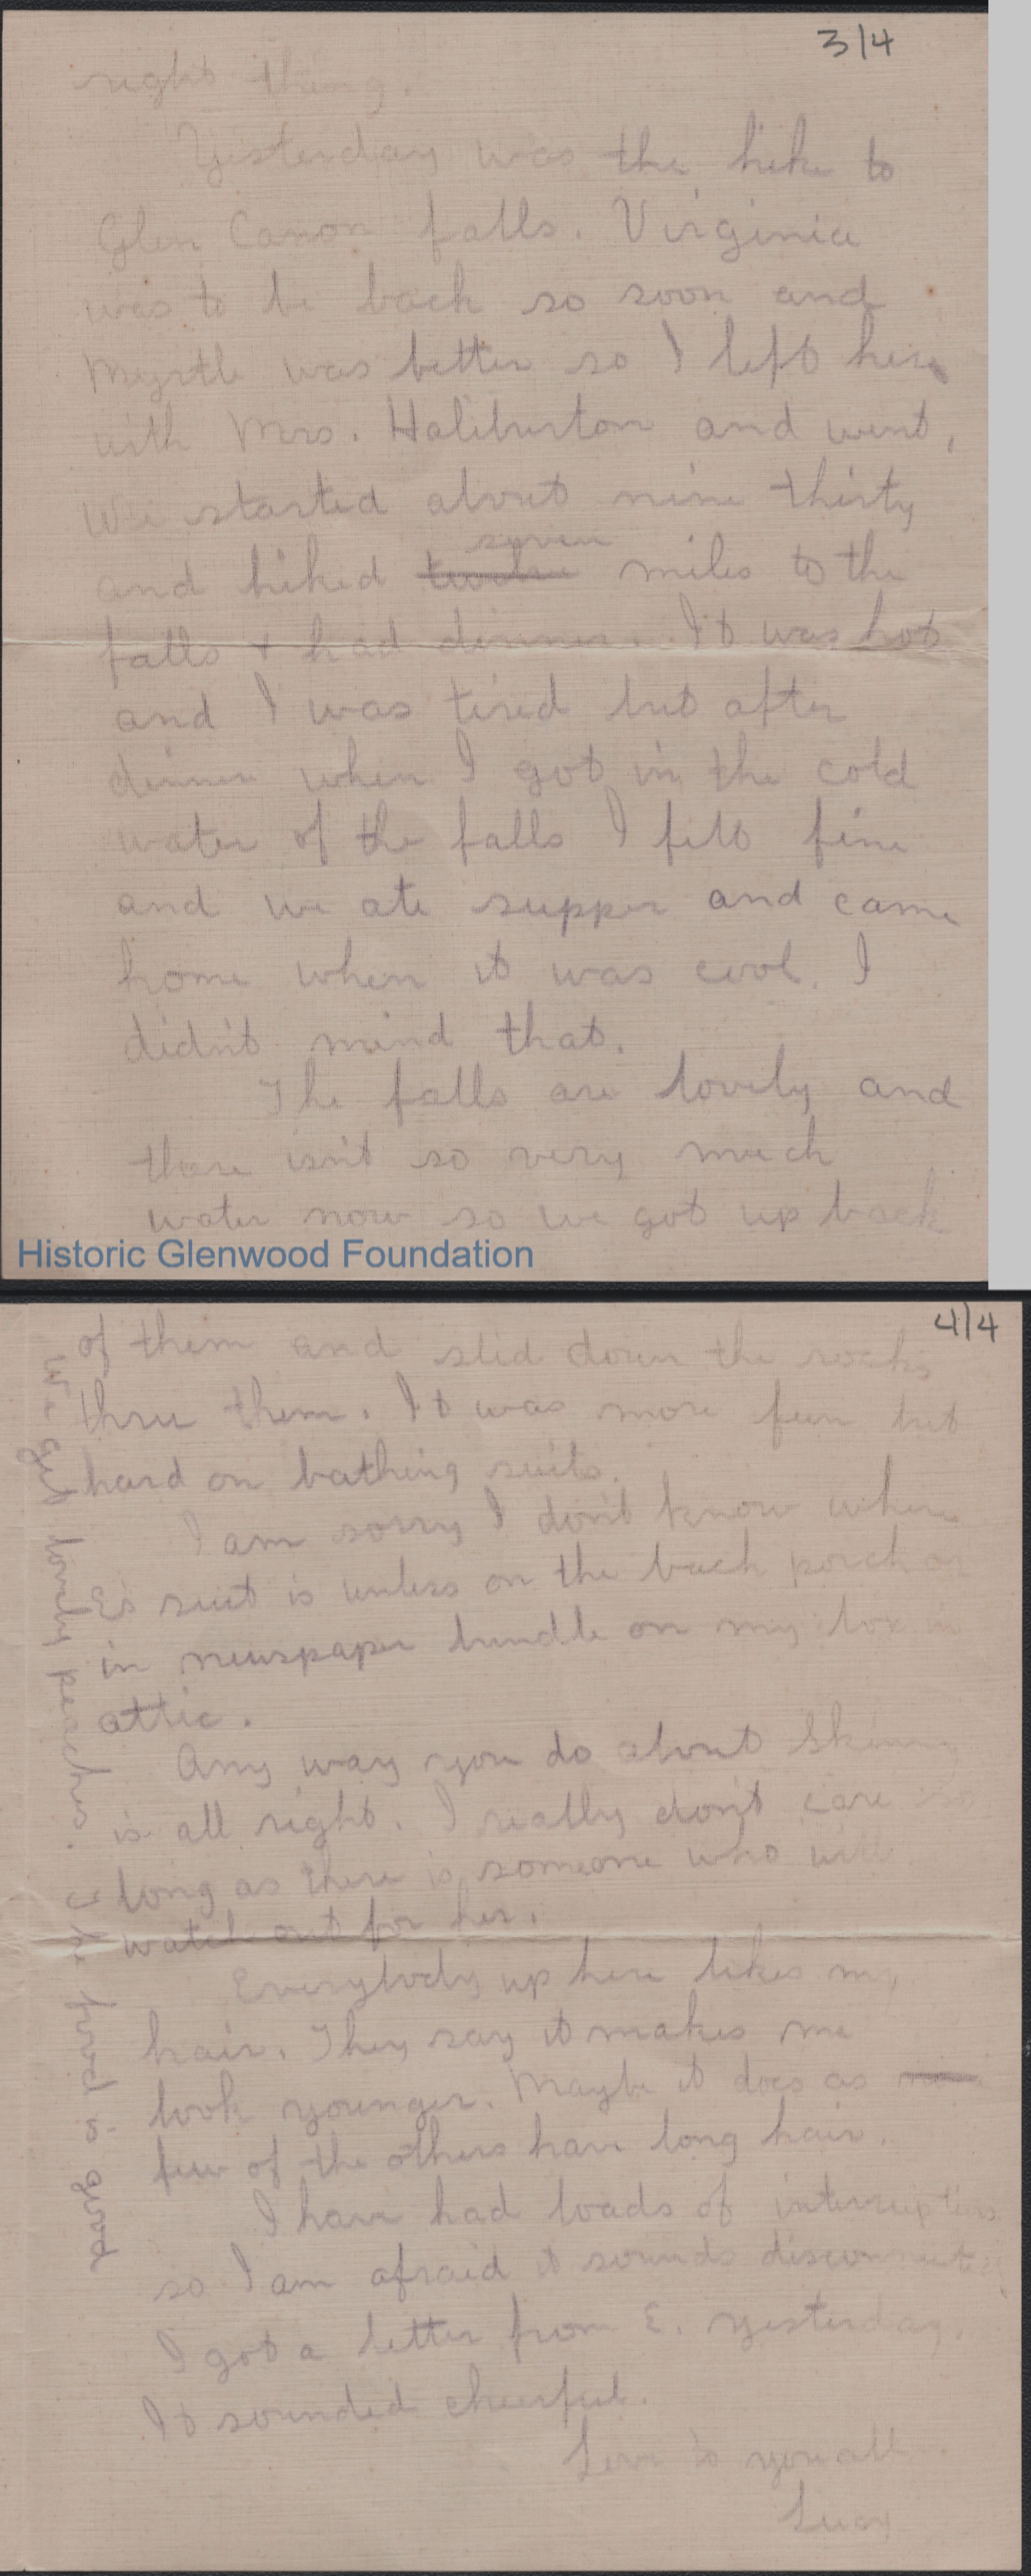 3/4
right thing.
Yesterday was the hike to
Glen Canon falls. Virginia
was to be back so soon and
Myrtle was better so I left her
with Mrs. Haliburton and went.
We started about nine thirty
seven
and hiked twelve miles to the
falls + had dinner. It was hot
and I was tired but after
dinner when I got in the cold
water of the falls I felt fine
and we ate supper and came
home when it was cool. I
didn't mind that.
The falls are lovely and
there isn't so very much
water now so we got up back
Historic Glenwood Foundation
4/4
of them and slid down the rocks
thru them. It was more fun but
hard on bathing suits.
I am sorry I don't know where
E's suit is unless on the back porch or
in newspaper bundle on my box in
attic.
Any way you do about Skinny
is all right. I really don't care so
long as there is someone who will
watch out for her.
Everybody up here likes my
hair. They say it makes me
look younger. Maybe it does as
few of the others have long hair.
I have had loads of interruptions
so I am afraid it sounds disconnected.
I got a letter from E. yesterday.
It sounded cheerful.
Love to you all
Lucy
We get lovely peaches. The food is good